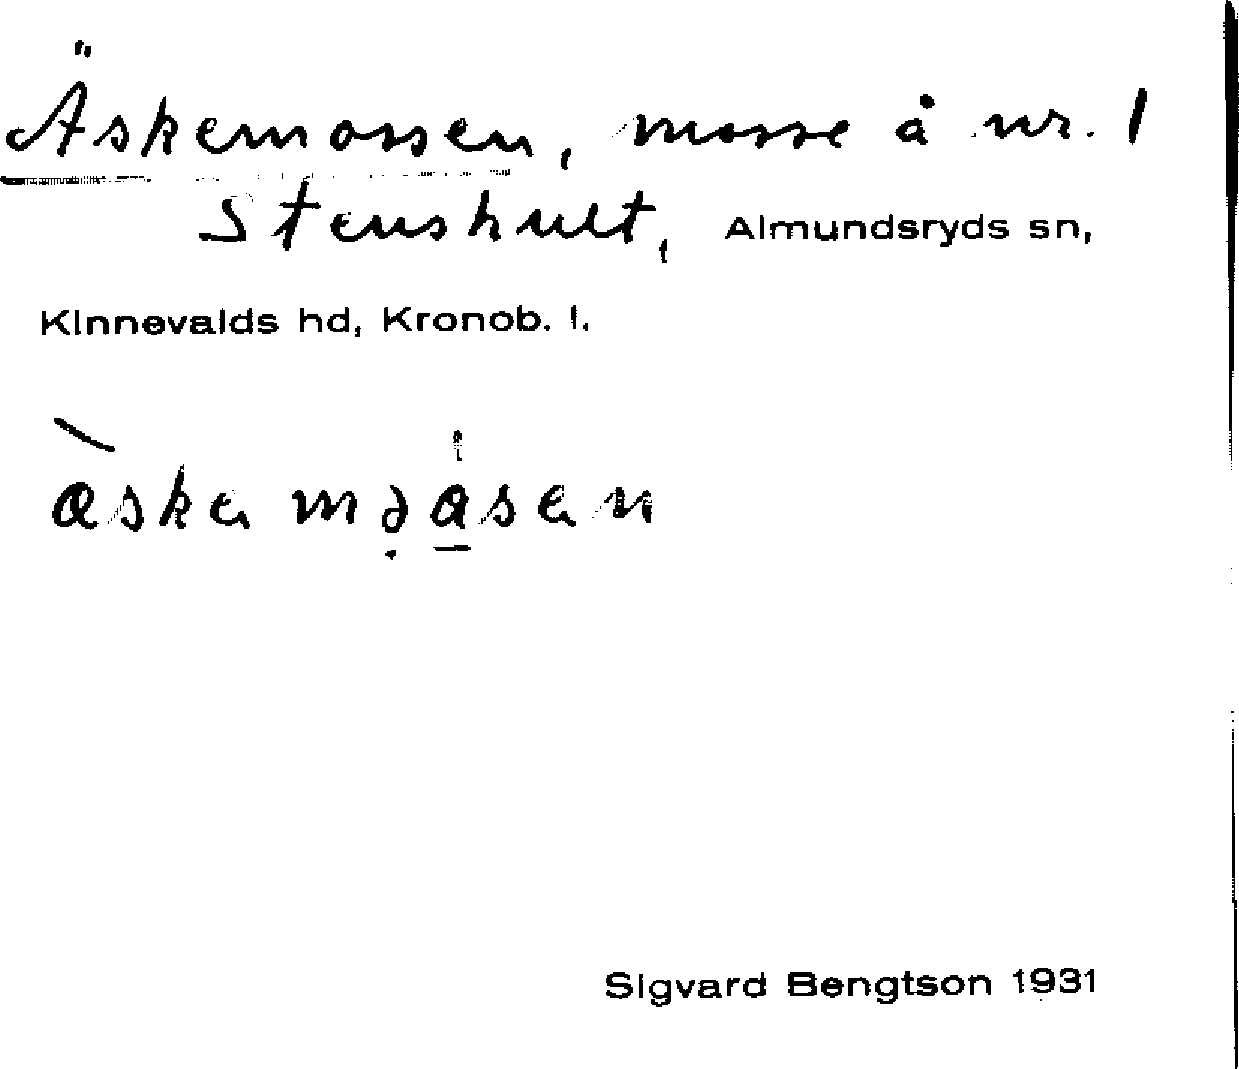 Äskemossen, mosse å nr. 1
Stenshult, Almundsryds sn,
Kinnevalds hd, Kronob. l.
Sigvard Bengtson 1931